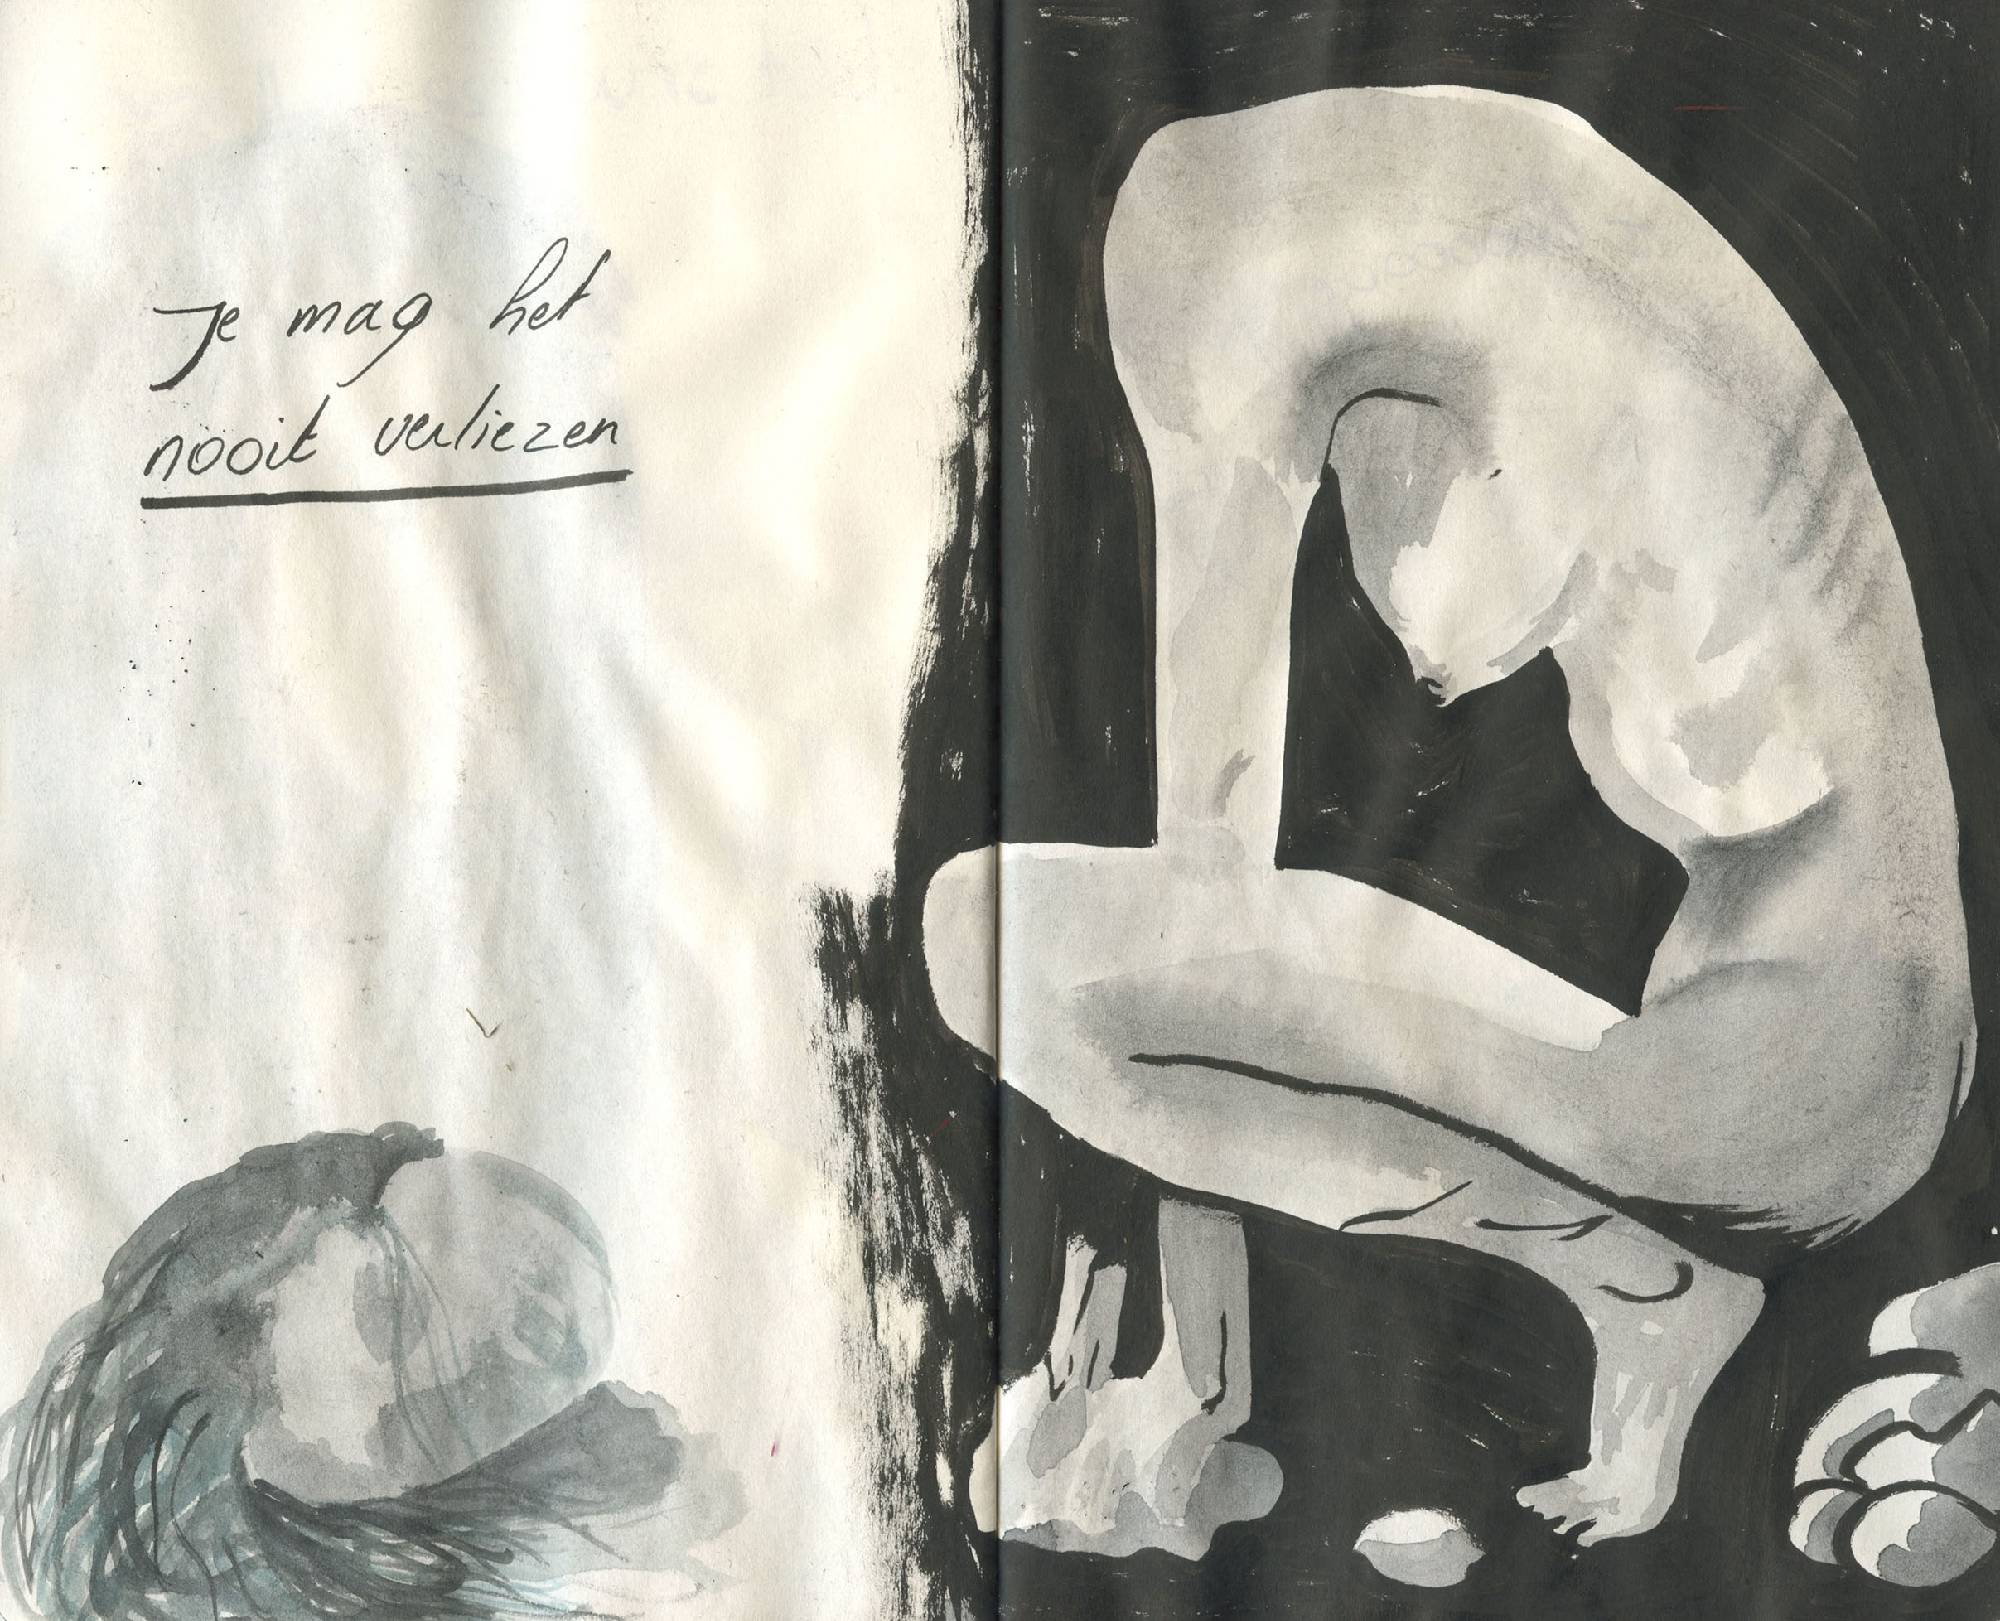 Je mag het
nooit verliezen